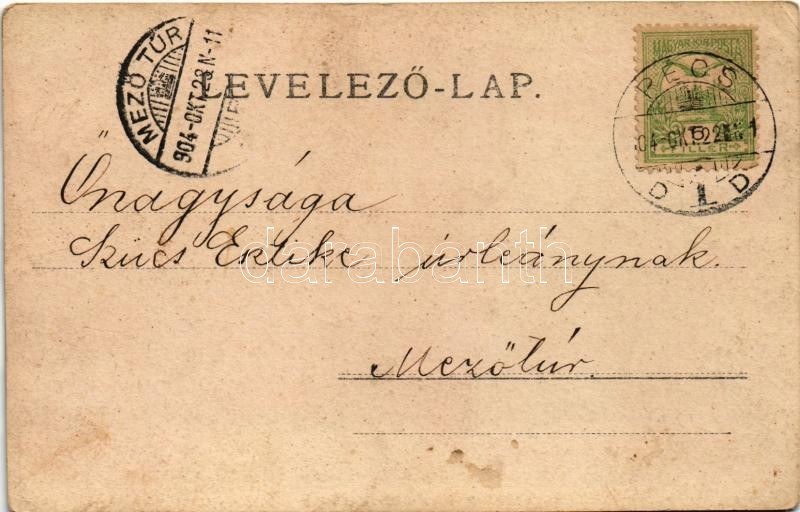 MEZŐ TÚR
904-OKT.28.N-11
LEVELEZŐ-LAP.
MAGYAR KIR. POSTA
5
FILLER
PÉCS
D D
1
Őnagysága
Szűcs Etelike úrleánynak.
Mezőtúr.
darabanth